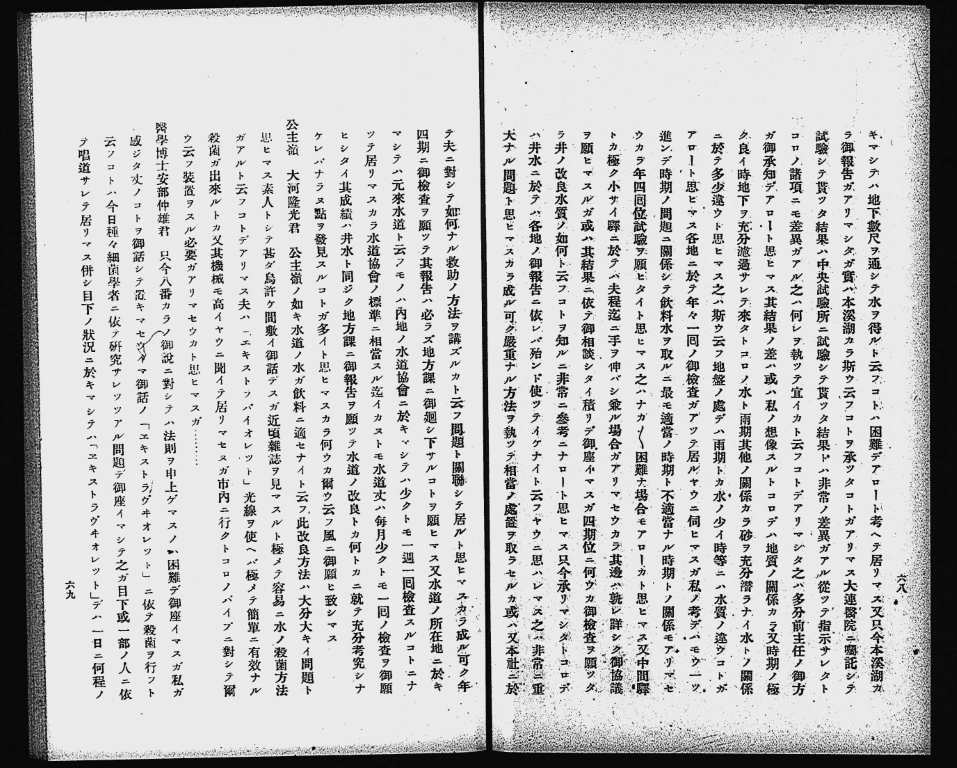 キマシテハ地下數尺ヲ通シテ水ヲ得ルト云フコトハ困難デアロート考ヘテ居リマス又只今本溪湖カ
ラ御報告ガアリマシタガ實ハ本溪湖カラ斯ウ云フコトヲ承ツタコトガアリマス大連醫院ニ囑託シテ
試驗シテ貰ツタ結果ハ中央試驗所ニ試驗シテ貰ツタ結果トハ非常ノ差異ガアル從ツテ指示サレタト
コロノ諸項ニモ差異ガアル之ハ何レヲ執ツテ宜イカト云フコトデアリマシタ之ハ多分前主任ノ御方
ガ御承知デアロート思ヒマス其結果ノ差ハ或ハ私ノ想像スルトコロデハ地質ノ關係カラ又時期ノ極
ク良イ時地下ヲ充分濾過サレテ來タトコロノ水ト雨期其他ノ關係カラ砂ヲ充分潛ラナイ水トノ關係
ニ於テ多少違ウト思ヒマス之ハ斯ウ云フ地盤ノ處デハ雨期トカ水ノ少イ時等ニハ水質ノ違ウコトガ
アロート思ヒマス各地ニ於テ年々一回ノ御檢査ガアツテ居ルヤウニ伺ヒマスガ私ノ考デハモウ一ツ
進ンデ時期ノ問題ニ關係シテ飲料水ヲ取ルニ最モ適當ノ時期ト不適當ナル時期トノ關係モアリマセ
ウカラ年四回位試驗ヲ願ヒタイト思ヒマス之ハナカ〳〵困難ナ場合モアローカト思ヒマス又中間驛
トカ極ク小サイ驛ニ於テハ夫程迄ニ手ヲ伸バシ兼ル場合ガアリマセウカラ其邊ハ孰レ詳シク御協議
ヲ願ヒマスルガ或ハ其結果ニ依テ御相談シタイ積リデ御座イマスガ四期位ニ何ウカ御檢査ヲ願ツタ
ラ井ノ改良水質ノ如何ト云フコトヲ知ルニ非常ニ參考ニナロート思ヒマス只今承リマシタトコロデ
ハ井水ニ於テハ各地ノ御報告ニ依レバ殆ンド使ツテイケナイト云フヤウニ思ハレマス之ハ非常ニ重
大ナル問題ト思ヒマスカラ成ル可ク嚴重ナル方法ヲ執ツテ相當ノ處置ヲ取ラセルカ或ハ又本社ニ於
六八
テ夫ニ對シテ如何ナル救助ノ方法ヲ講ズルカト云フ問題ト關聯シテ居ルト思ヒマスカラ成ル可ク年
四期ニ御檢査ヲ願ツテ其報告ハ必ラズ地方課ニ御廻シ下サルコトヲ願ヒマス又水道ノ所在地ニ於キ
マシテハ元來水道ト云フモノハ内地ノ水道協會ニ於キマシテハ少クトモ一週一回檢査スルコトニナ
ツテ居リマスカラ水道協會ノ標準ニ相當スル迄イカストモ水道丈ハ毎月少クトモ一回ノ檢査ヲ御願
ヒシタイ其成績ハ井水ト同ジク地方課ニ御報告ヲ願ツテ水道ノ改良トカ何トカニ就テ充分考究シナ
ケレバナラヌ點ヲ發見スルコトガ多イト思ヒマスカラ何ウカ爾ウ云フ風ニ御願ヒ致シマス
公主嶺 大河隆光君 公主嶺ノ如キ水道ノ水ガ飲料ニ適セナイト云フ此改良方法ハ大分大キイ問題ト
思ヒマス素人トシテ甚ダ烏許ケ間敷イ御話デスガ近頃雜誌ヲ見マスルト極メテ容易ニ水ノ殺菌方法
ガアルト云フコトデアリマス夫ハ「エキストラバイオレット」光線ヲ使ヘバ極メテ簡單ニ有效ナル
殺菌ガ出來ルトカ又其機械モ高イヤウニ聞イテ居リマセヌガ市内ニ行クトコロノパイプニ對シテ爾
ウ云フ裝置ヲスル必要ガアリマセウカト思ヒマスガ………
醫學博士安部仲雄君 只今八番カラノ御說ニ對シテハ法則ヲ申上ゲマスノハ困難デ御座イマスガ私ガ
感ジタ丈ノコトヲ御話シテ置キマセウ今御話ノ「エキストラヴヰオレット」ニ依テ殺菌ヲ行フト
云フコトハ今日種々細菌學者ニ依テ研究サレツツアル問題デ御座イマシテ之ガ目下或一部ノ人ニ依
テ唱道サレテ居リマス併シ目下ノ狀況ニ於キマシテハ「エキストラヴヰオレット」デハ一日ニ何程ノ
六九